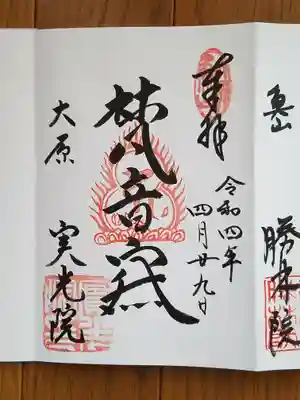 魚山
勝林院
奉拝
令和四年
四月廿九日
梵音
大原
実光院